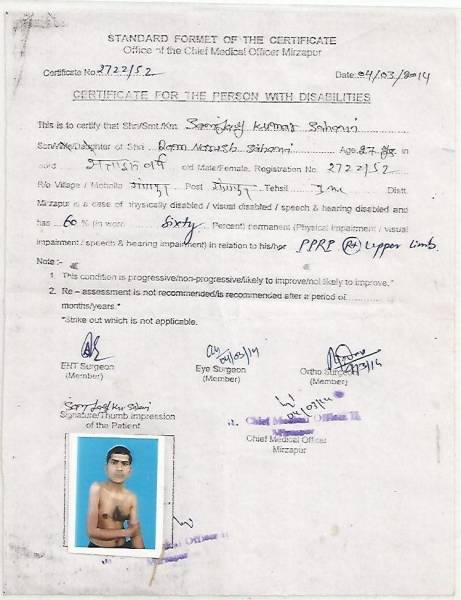 STANDARD FORMET OF THE CERTIFICATE
Office of the Chief Medical Officer Mirzapur
Certificate No. 2722/52 Date: 04/03/2014
CERTIFICATE FOR THE PERSON WITH DISABILITIES
This is to certify that Shri/Smt./Km. Kumar Sahani
Son/Wife/Daughter of Shri Ram Sahani Age 27
old Male/Female. Registration No. 2722/52
R/o Village / Mohalla Post Tehsil Distt.
Mirzapur is a case of physically disabled / visual disabled / speech & hearing disabled and
has 60 % (in word Sixty Percent) permanent (Physical impairment / visual
impairment / speech & hearing impairment) in relation to his/her PPRP (Rt) Upper Limb.
Note :-
1. This condition is progressive/non-progressive/likely to improve/not likely to improve.*
2. Re – assessment is not recommended/is recommended after a period of
months/years.*
*Strike out which is not applicable.
04/03/14
ENT Surgeon Eye Surgeon Ortho Surgeon
(Member) (Member) (Member)
04/03/14
Signature/Thumb impression
of the Patient
Chief Medical Officer
Mirzapur
Chief Medical Officer
Mirzapur
Medical Officer
Mirzapur